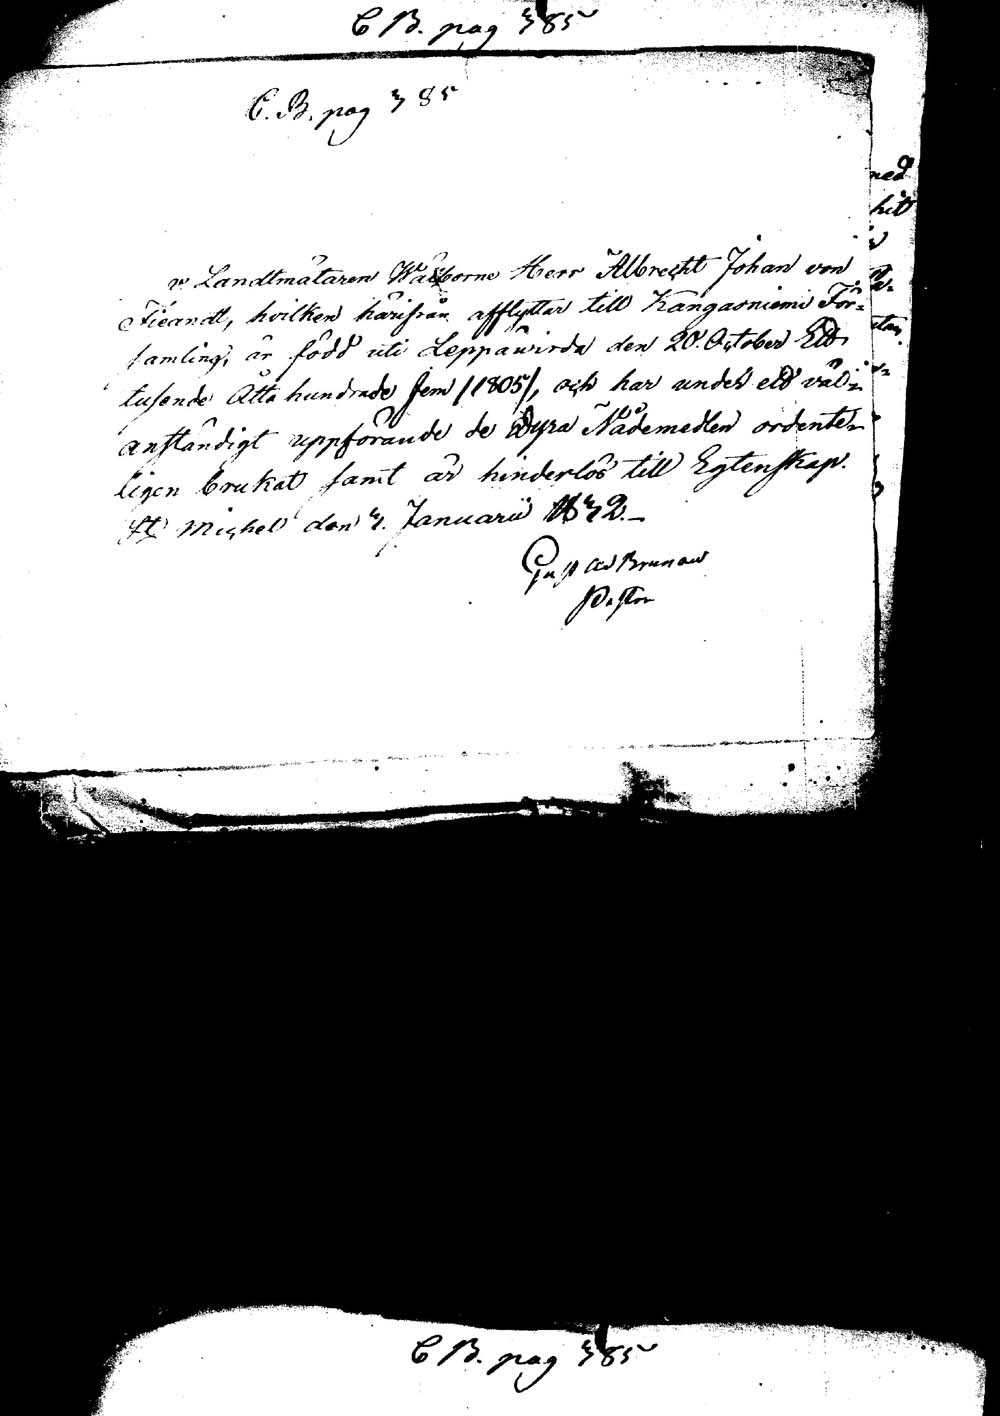 C B. pag 385
C. B. pag 385
v. Landtmätaren Wälborne Herr Albrecht Johan von
Fieandt, hvilken härifrån afflyttar till Kangasniemi För-
samling, är född uti Leppäwirda den 20. October Ett
tusende Åtta hundrade fem /1805/, och har under ett väl-
anständigt uppförande de Dyra Nådemedlen ordente-
ligen brukat samt är hinderlös till Egtenskap.
St Michel den 3. Januarii 1832.
Gust Ad Brunow
Pastor
C B. pag 385